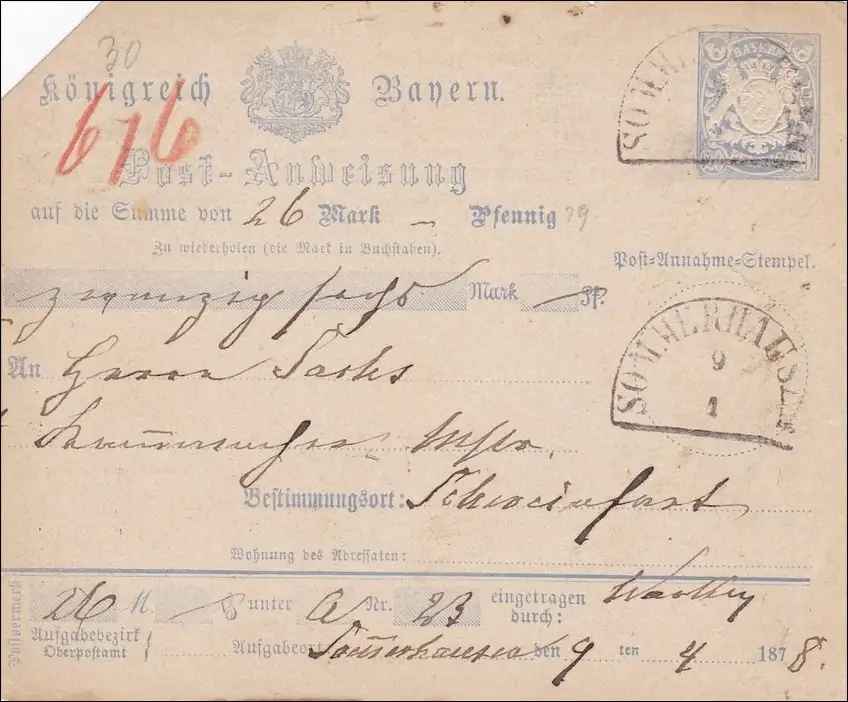 30
Königreich Bayern.
616
Post-Anweisung
BAYERN
SOMMERH
auf die Summe von 26 Mark – Pfennig 79
Zu wiederholen (die Mark in Buchstaben).
Post-Annahme-Stempel.
zwanzig sechs Mark — Pf.
SOMMERHAUSEN
9
1
An Herrn Sachs
Bestimmungsort: Schweinfurt
Wohnung des Adressaten:
Postvermerk
26 M. unter a Nr. 23 eingetragen durch:
Aufgabebezirk
Oberpostamt
Aufgabeort Sommerhausen den 9 ten 4 1878.